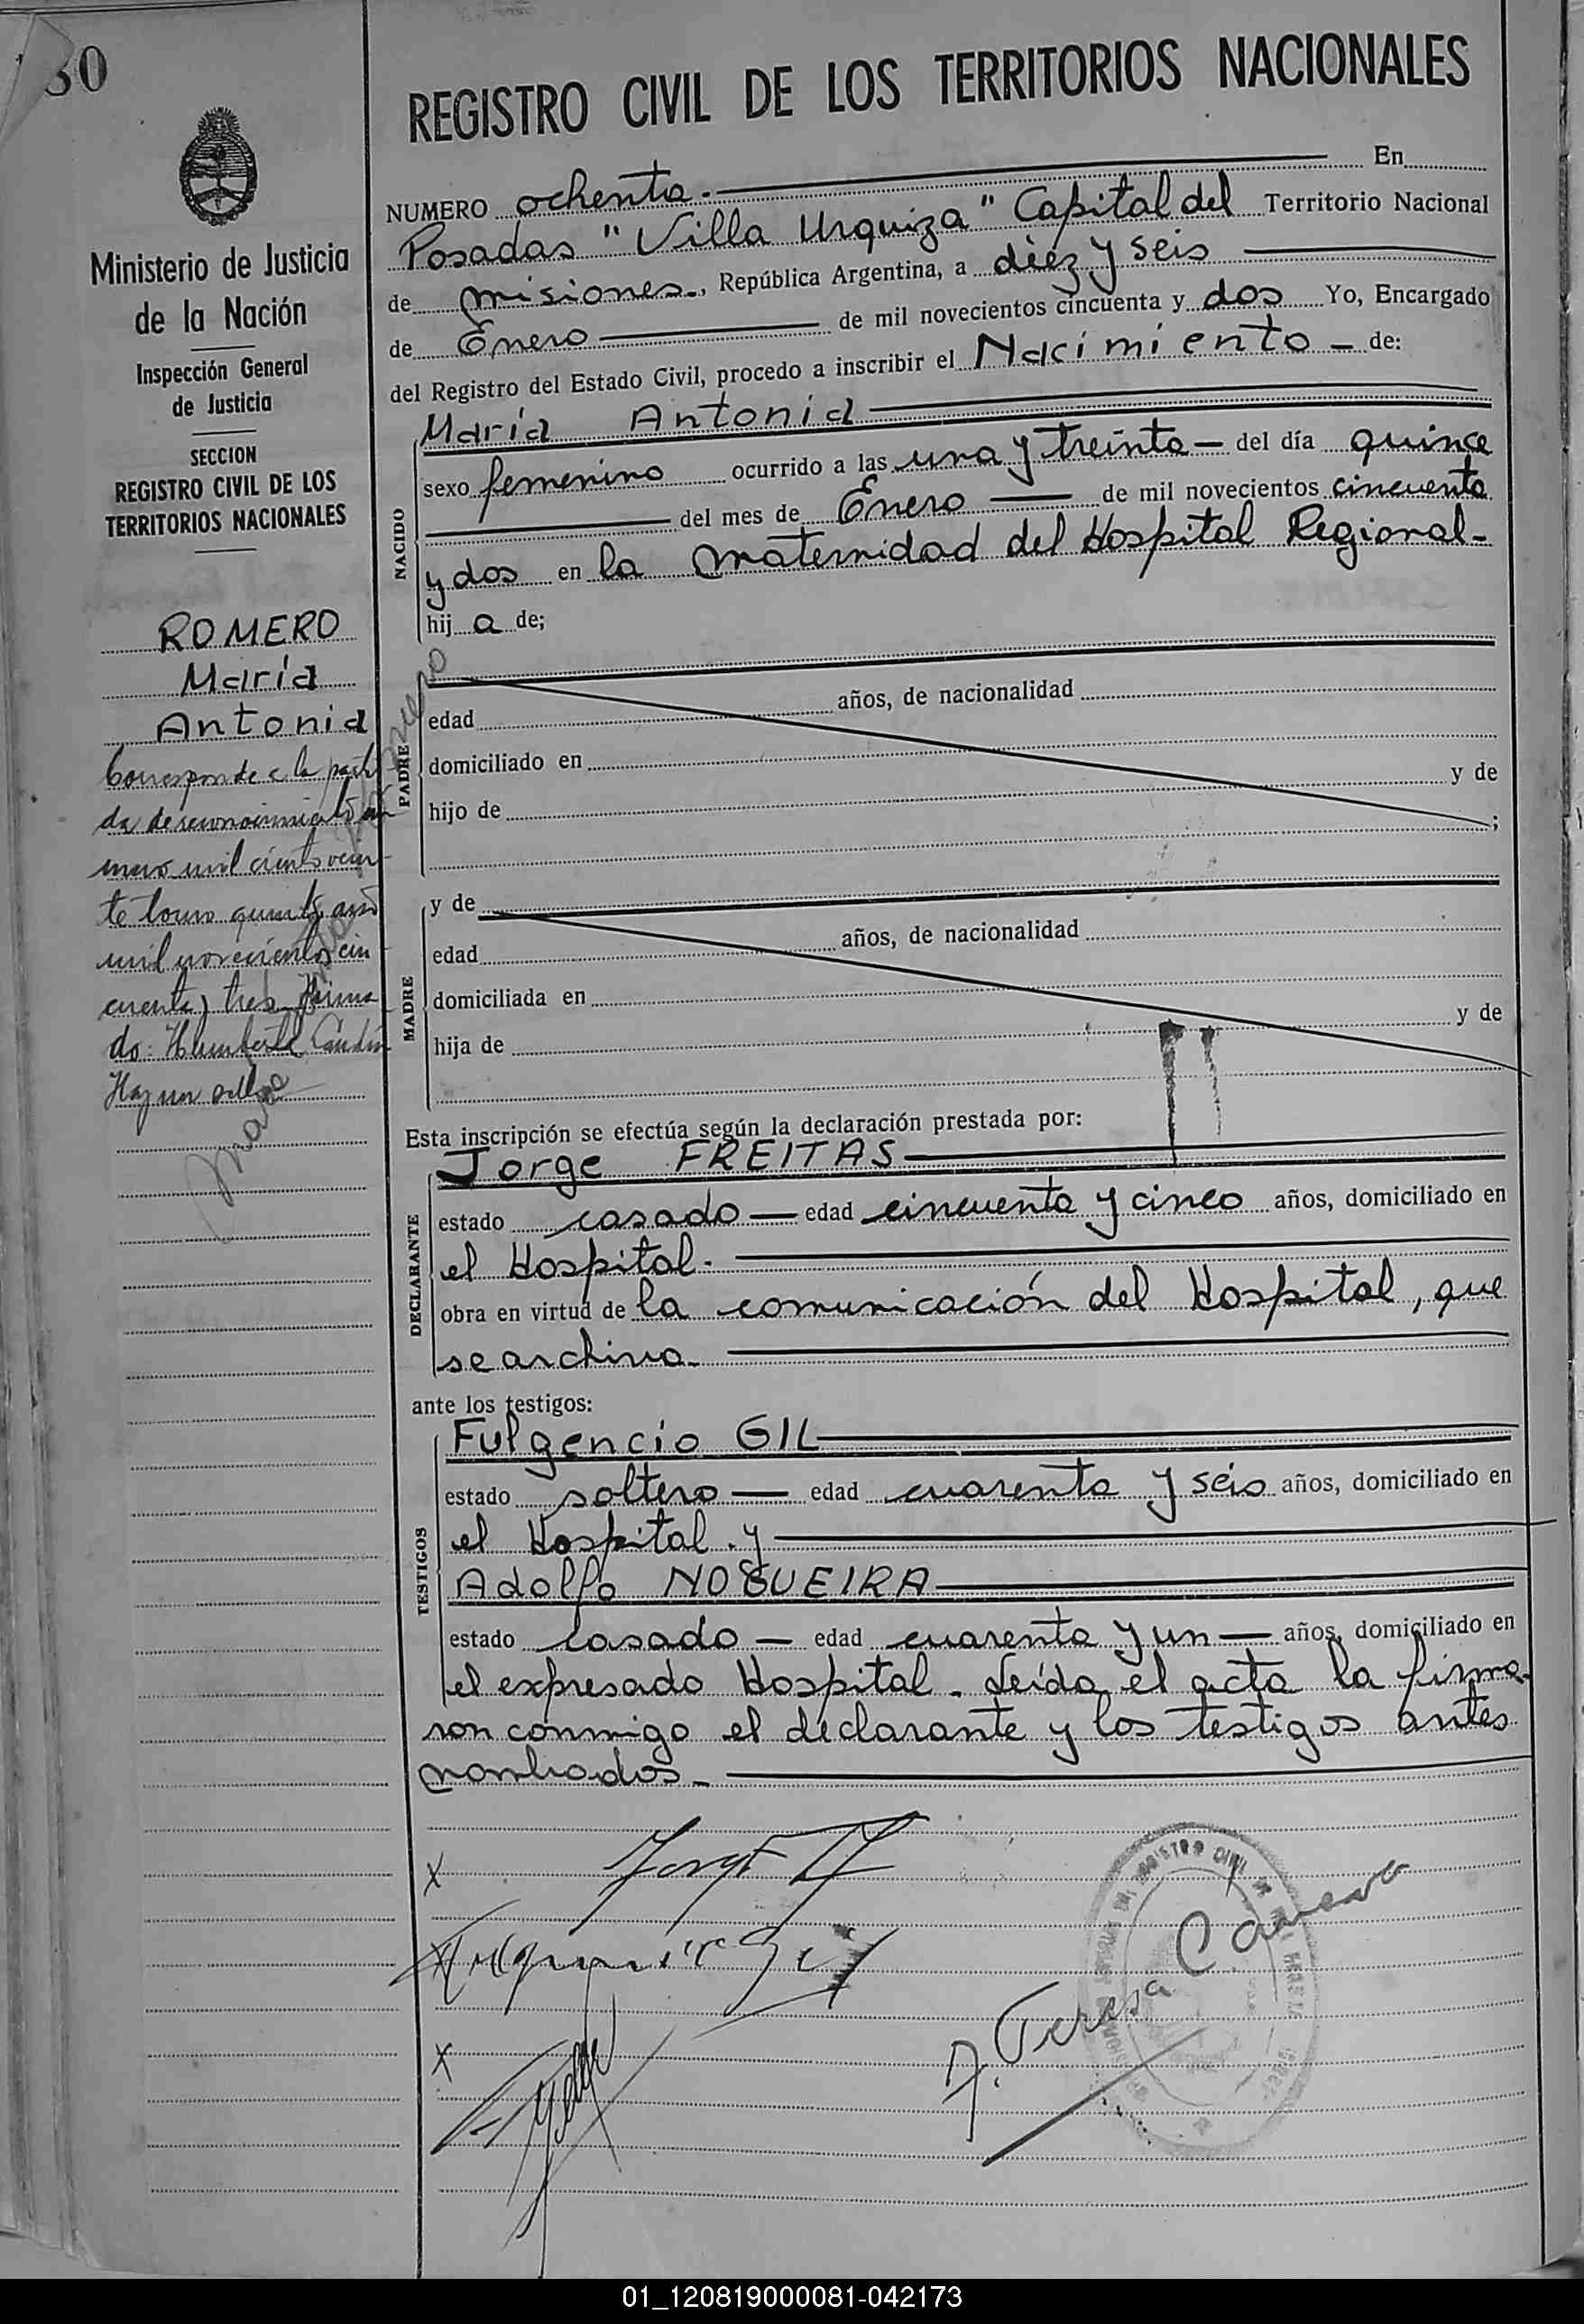 80
REGISTRO CIVIL DE LOS TERRITORIOS NACIONALES
Ministerio de Justicia
de la Nación
Inspección General
de Justicia
SECCION
REGISTRO CIVIL DE LOS
TERRITORIOS NACIONALES
ROMERO
María
Antonia
Corresponde a la parti
da de reconocimiento nú
mero mil ciento vein-
te tomo quinto año
mil novecientos cin
cuenta y tres Firma
do: Humberto
Hay un sello
NUMERO ochenta.- En
Posadas "Villa Urquiza" Capital del Territorio Nacional
de misiones., República Argentina, a diez y seis
de Enero de mil novecientos cincuenta y dos Yo, Encargado
del Registro del Estado Civil, procedo a inscribir el Nacimiento - de:
NACIDO
María Antonia
sexo femenino ocurrido a las una y treinta - del día quince
del mes de Enero de mil novecientos cincuenta
y dos en la maternidad del Hospital Regional-
hij a de;
PADRE
edad años, de nacionalidad
domiciliado en
hijo de y de
;
MADRE
y de
edad años, de nacionalidad
domiciliada en
hija de y de
Esta inscripción se efectúa según la declaración prestada por:
DECLARANTE
Jorge FREITAS
estado casado - edad cincuenta y cinco años, domiciliado en
el Hospital.
obra en virtud de la comunicación del Hospital, que
se archiva.
ante los testigos:
TESTIGOS
Fulgencio GIL
estado soltero - edad cuarenta y seis años, domiciliado en
el Hospital. y
Adolfo NOGUEIRA
estado casado - edad cuarenta y un - años, domiciliado en
el expresado Hospital. Leída el acta la firma-
ron conmigo el declarante y los testigos antes
nombrados.-
x
x
A. Teresa C
01_120819000081-042173